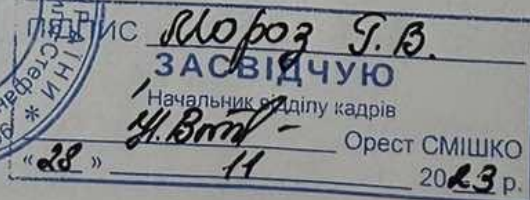 ПІДПИС Мороз Г. В.
ЗАСВІДЧУЮ
Начальник відділу кадрів
Орест СМІШКО
«28» 11 2023 р.